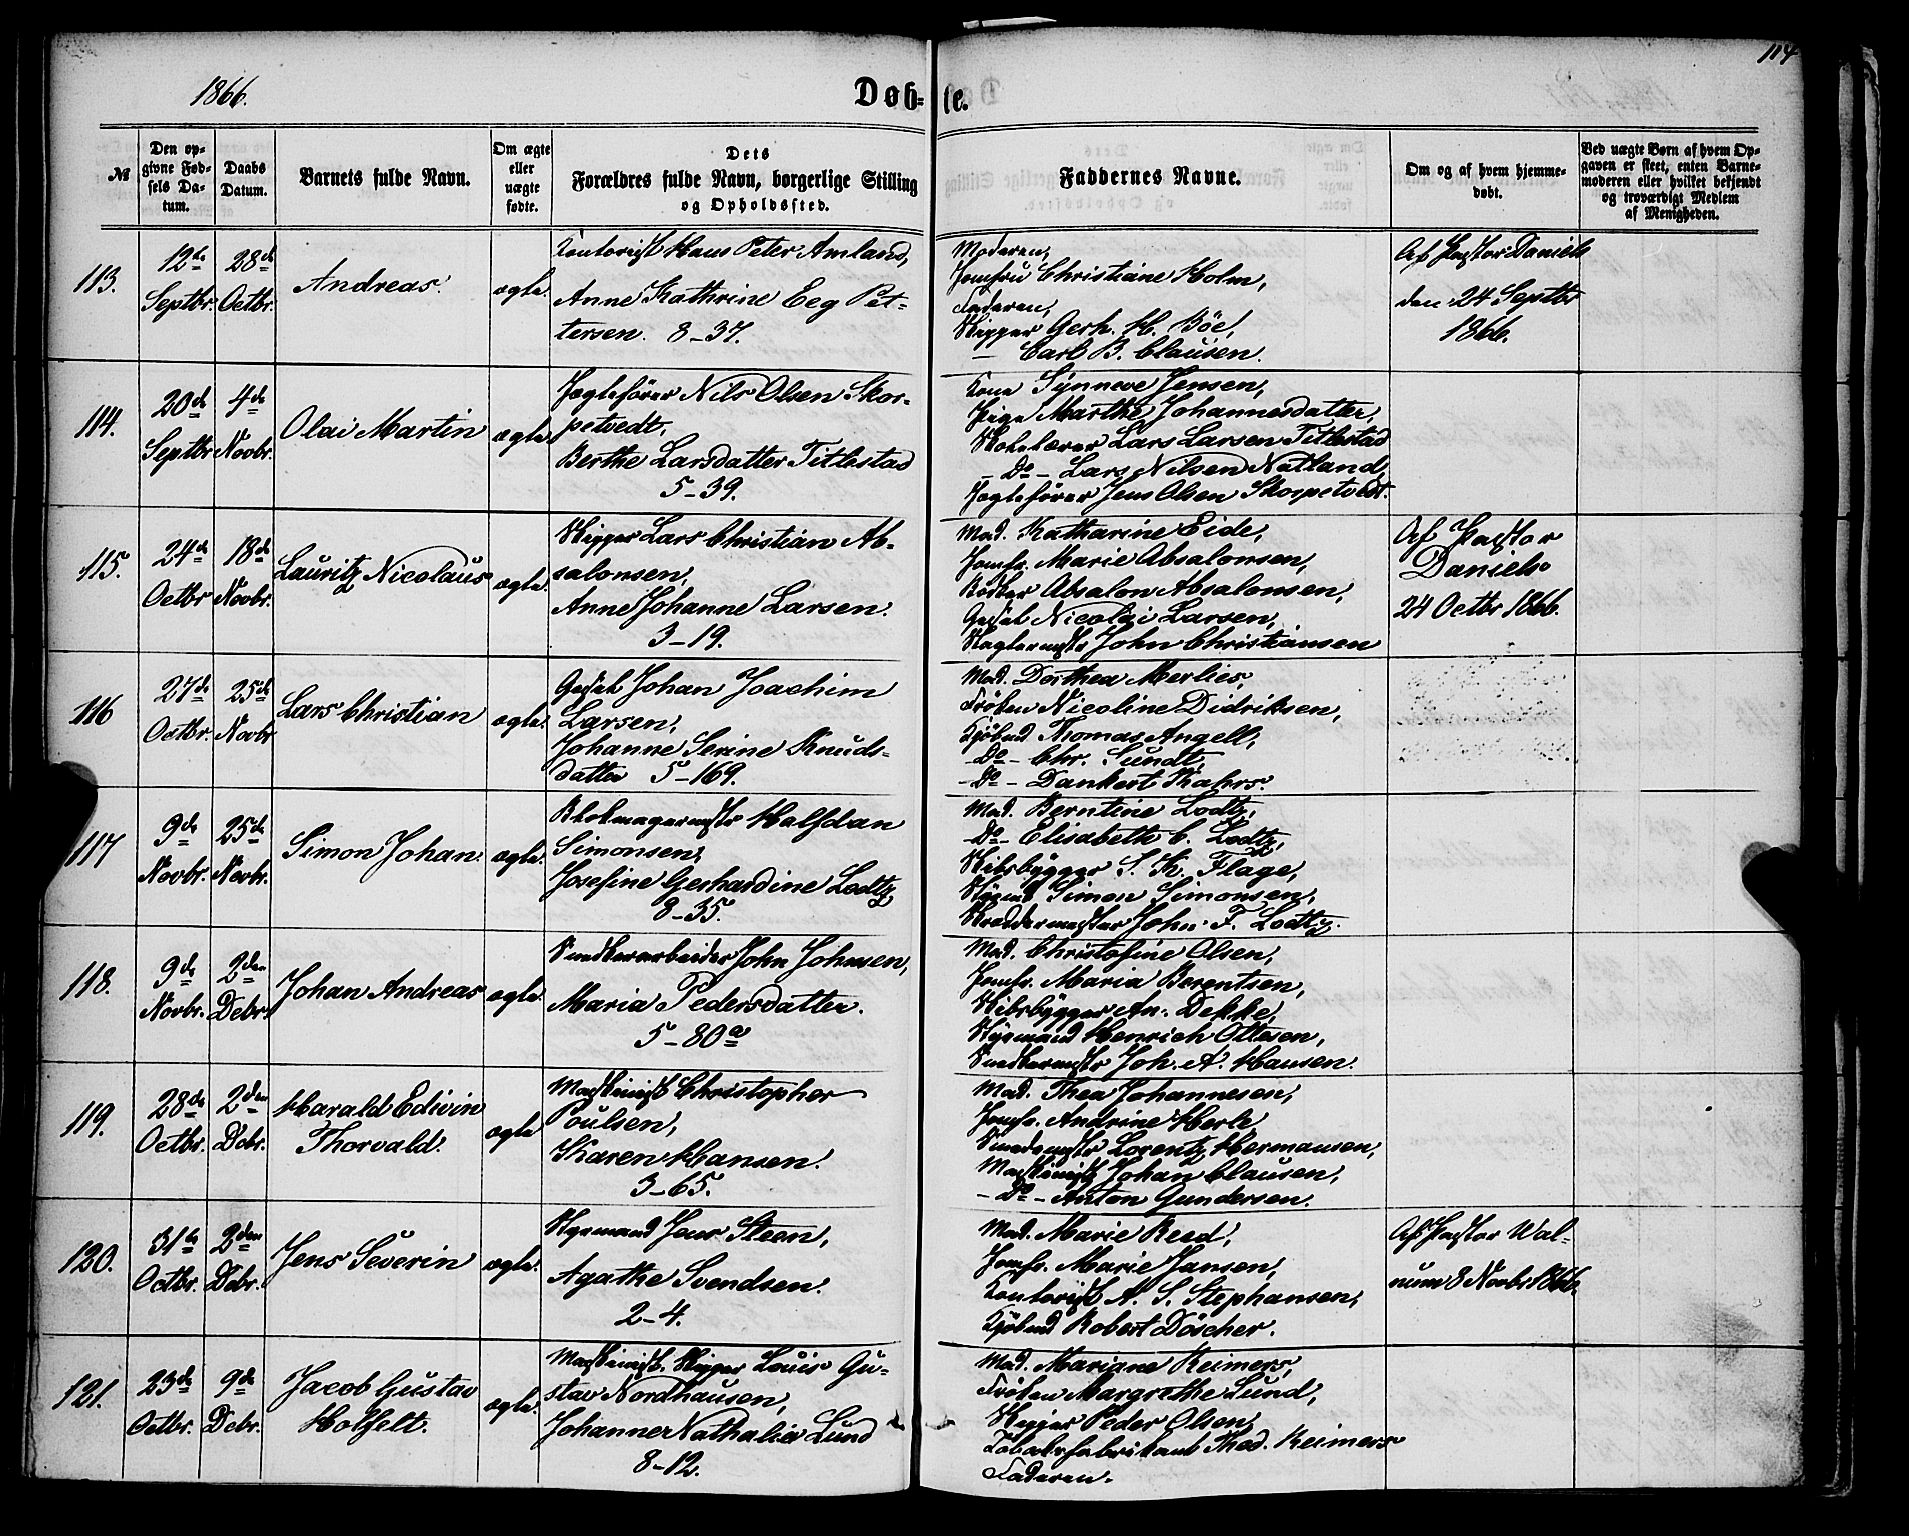 114
1866.
Døb-
te.
№
Den op-
givne Fød-
sels Da-
tum.
Daabs
Datum.
Barnets fulde Navn.
Om ægte
eller
uægte
fødte.
Dets
Forældres fulde Navn, borgerlige Stilling
og Opholdssted.
Faddernes Navne.
Om og af hvem hjemme-
døbt.
Ved uægte Børn af hvem Op-
gaven er skeet, enten Barne-
moderen eller hvilket bekjendt
og troværdigt Medlem
af Menigheden.
113.
12te
Septbr.
28de
Octbr.
Andreas.
ægte.
Kontorist Hans Peter Amland,
Anne Kathrine Eeg Pet-
tersen. 8-37.
Moderen,
Jomfru Christiane Holm,
Faderen,
Skipper Gerh. H. Böe,
— Carl B. Clausen.
Af Pastor Daniels
den 24 Septbr
1866.
114.
20de
Septbr
4de
Novbr.
Olai Martin
ægte.
Jægtefører Nils Olsen Skor-
petvedt,
Berthe Larsdatter Titlestad
5-39.
Kone Synneve Jensen,
Pige Marthe Johannesdatter,
Skolelærer Lars Larsen Titlestad
- Do - Lars Nilsen Natland,
Jægtefører Jens Olsen Skorpetvedt.
115.
24de
Octbr
18de
Novbr.
Lauritz Nicolaus
ægte.
Skipper Lars Christian Ab-
salonsen,
Anne Johanne Larsen.
3-19.
Mad. Katharine Eide,
Jomfr. Marie Absalonsen,
Bödker Absalon Absalonsen,
Gesel Nicolai Larsen,
Slagtermstr John Christiansen
Af Pastor
Daniels
24 Octbr 1866.
116
27de
Octbr.
25de
Novbr
Lars Christian
ægte.
Gesel Johan Joachim
Larsen,
Johanne Serine Knuds-
datter 5-169.
Mad. Dorthea Merlies,
Frøken Nicoline Didriksen,
Kjöbmd Thomas Angell,
- Do - Chr. Sundt,
- Do - Dankert Kahrs.
117
9de
Novbr.
25de
Novbr.
Simon Johan.
ægte.
Blokmagermstr Halfdan
Simonsen,
Josefine Gerhardine Lodtz
8-35.
Mad. Berntine Lodtz,
- Do - Elisabeth C. Lodtz,
Skibsbygger S. K. Flage,
Simon Simonsen,
John F. Lodtz.
118.
9de
Novbr.
2den
Debr.
Johan Andreas
ægte.
Snedkerarbeider John Johnsen,
Maria Pedersdatter.
5-80a
Mad. Christofine Olsen,
Jomfr. Maria Berentsen,
Skibsbygger An. Dekke,
Styrmand Henrich Ottesen,
Snedkermstr Joh. A. Hansen.
119.
28de
Octbr.
2den
Debr.
Harald Edivin
Thorvald.
ægte
Maskinist Christopher
Poulsen,
Karen Hansen.
3-65.
Mad. Thea Johannesen,
Jomfr. Andrine Herle
Smedemstr Lorentz Hermansen,
Maskinist Johan Clausen,
- Do - Anton Gundersen.
120.
31te
Octbr.
2den
Debr.
Jens Severin
ægte.
Styrmand Jens Steen,
Agathe Svendsen.
2-4.
Mad. Marie Reed,
Jomfr. Marie Jansen,
Kontorist A. S. Stephansen,
Kjöbmd Robert Döscher.
Af Pastor Wal-
num 8 Novbr 1866.
121.
23de
Octbr.
9de
Debr.
Jacob Gustav
Holfelt.
ægte.
Maskinist. Skipper Louis Gu-
stav Nordhausen,
Johanne Nathalia Lund
8-12.
Mad. Mariane Reimers,
Frøken Margrethe Lund,
Skipper Peder Olsen,
Tobaksfabrikant Thod. Reimers
Faderen.